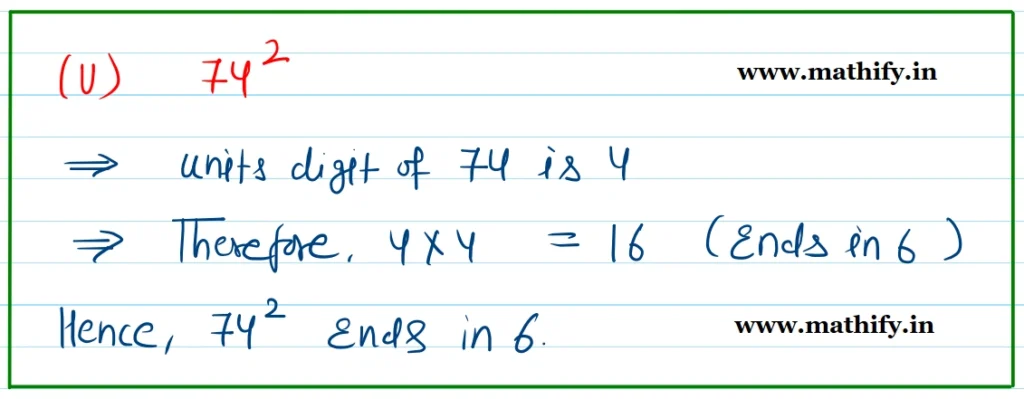 (v) 74²
www.mathify.in
⇒ units digit of 74 is 4
⇒ Therefore, 4 × 4 = 16 (Ends in 6)
Hence, 74² Ends in 6.
www.mathify.in